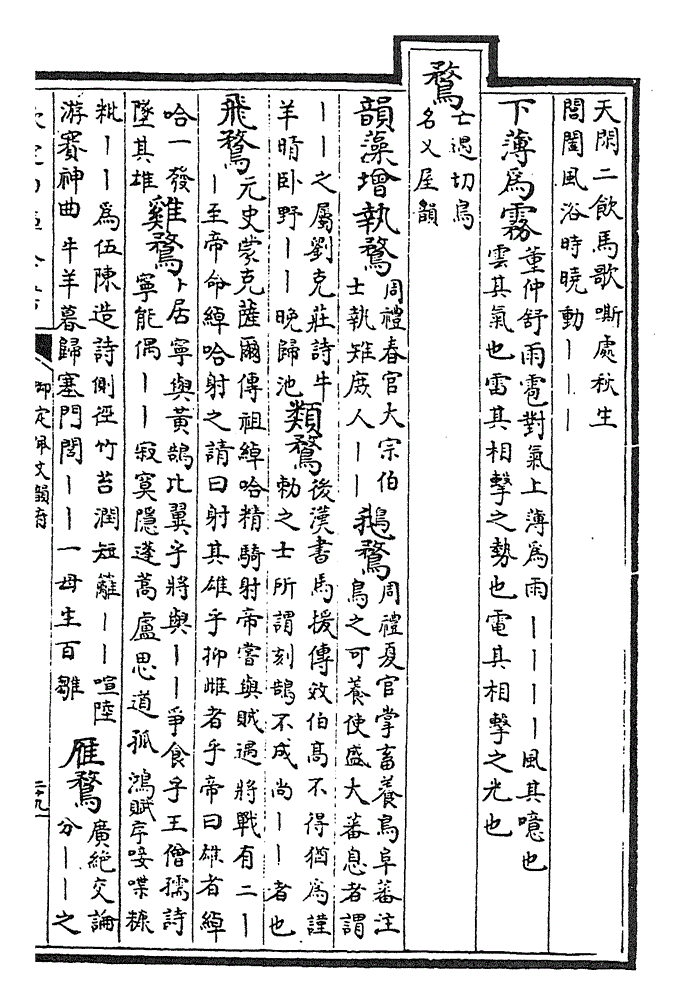 天閑二飲馬歌嘶處秋生
閶闔風浴時曉動丨丨丨
下薄為霧董仲舒雨雹對氣上薄為雨丨丨丨丨風其噫也
雲其氣也雷其相擊之勢也電其相擊之光也
鶩亡遇切鳥
名又屋韻
韻藻增執鶩周禮春官大宗伯
士執雉庶人丨丨
鵝鶩周禮夏官掌畜養鳥阜蕃注
鳥之可養使盛大蕃息者謂
丨丨之屬劉克莊詩牛
羊晴卧野丨丨晚歸池
類鶩後漢書馬援傳效伯髙不得猶為謹
勅之士所謂刻鵠不成尚丨丨者也
飛鶩元史蒙克薩爾傳祖綽哈精騎射帝嘗與賊遇將戰有二丨
丨至帝命綽哈射之請曰射其雄乎抑雌者乎帝曰雄者綽
哈一發
墜其雄
雞鶩卜居寧與黄鵠比翼乎將與丨丨爭食乎王僧孺詩
寧能偶丨丨寂寞隱蓬蒿盧思道孤鴻賦序唼喋糠
粃丨丨為伍陳造詩側徑竹苔潤短籬丨丨喧陸
游賽神曲牛羊暮歸塞門閭丨丨一母生百雛
雁鶩廣絶交論
分丨丨之
御定佩文韻府